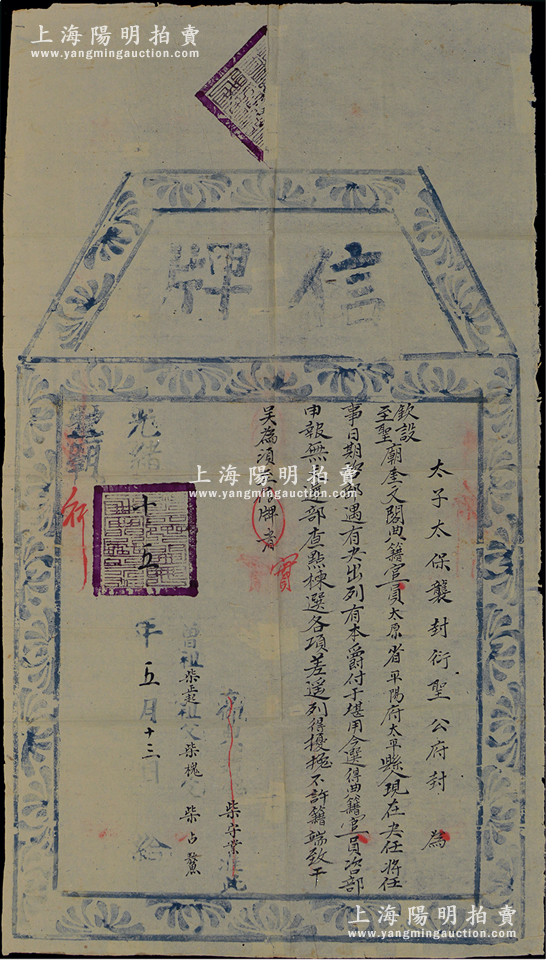 上海陽明拍賣
www.yangmingauction.com
信牌
太子太保襲封衍聖公府封 為
欽設
至聖廟奎文閣典籍官員太原省平陽府太平縣人現在央任將任
事日期咨部遇有央出列有本爵付于堪用合選得典籍官員咨部
申報無 部查點揀選各項差遙列得擾擾不許籍端致干
关為須至信牌者
上海陽明拍賣
www.yangmingauction.com
實
柴守業 准此
曾祖柴 祖父柴槐 父柴占鰲
光緒十五年五月十三日 給
聖朝
行
上海陽明拍賣
www.yangmingauction.com